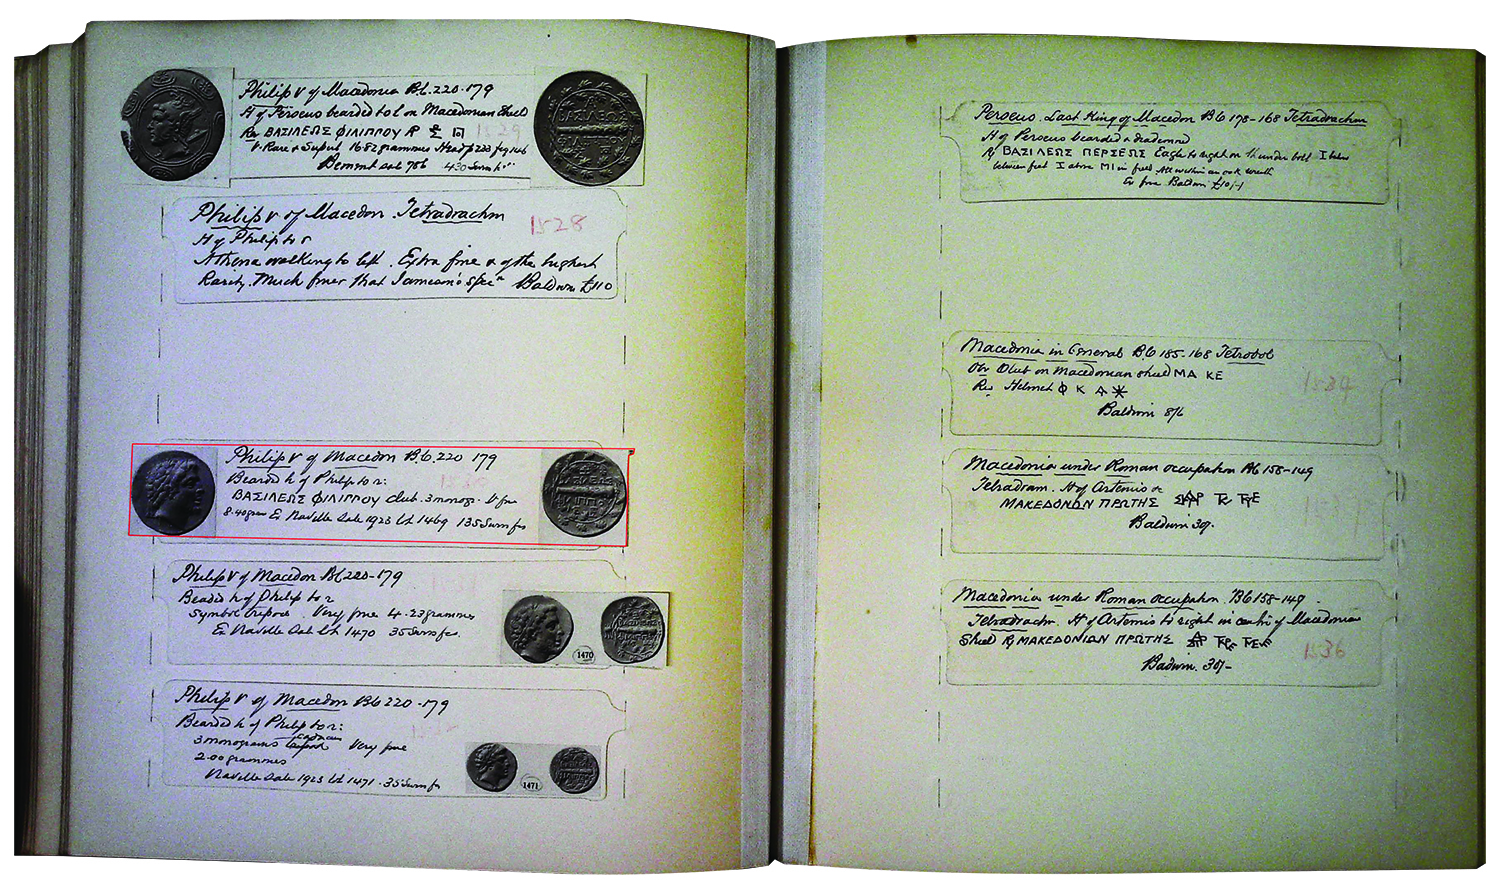 Philip V of Macedonia B.C. 220-179
H of Perseus bearded to l on Macedonian shield
Rev ΒΑΣΙΛΕΩΣ ΦΙΛΙΠΠΟΥ
1529
V. Rare & Superb 16.82 grammes Head p 223 fig 146
Bement sale 786 430 Swiss fr
Philip V of Macedon Tetradrachm
1528
H of Philip to r
Athena walking to left. Extra fine & of the highest
Rarity. Much finer that Jameson's Specn Baldwin £110
Philip V of Macedon B.C. 220 179
Bearded h of Philip to r:
1530
ΒΑΣΙΛΕΩΣ ΦΙΛΙΠΠΟΥ club. 3 monog. V fine
8.40 gram Ex Naville Sale 1923 Lot 1469 135 Swiss frs
Philip V of Macedon BC 220-179
Bearded h of Philip to r
Symbol tripod Very fine 4.23 grammes
Ex Naville Sale Lot 1470 35 Swiss frs.
1470
Philip V of Macedon BC 220-179
Bearded h of Philip to r:
3 monograms Very fine
2.00 grammes
Naville Sale 1923 Lot 1471. 35 Swiss fr
1471
Perseus. Last King of Macedon BC 178-168 Tetradrachm
H of Perseus bearded & diademed
R ΒΑΣΙΛΕΩΣ ΠΕΡΣΕΩΣ Eagle to right on thunder bolt I below
between feet I above MI in field All within an oak wreath
Ex fine Baldwin £10/-/
Macedonia in General BC 185-168 Tetrobol
Obv Club on Macedonian shield MA KE
Rev Helmet Φ Κ
1534
Baldwin 8/6
Macedonia under Roman occupation BC 158-149
Tetradram. H of Artemis &c
ΜΑΚΕΔΟΝΩΝ ΠΡΩΤΗΣ
Baldwin 30/-
Macedonia under Roman occupation. BC 158-149
Tetradrachm. H of Artemis to right in centre of Macedonian
Shield R ΜΑΚΕΔΟΝΙΩΝ ΠΡΩΤΗΣ
1536
Baldwin. 30/-